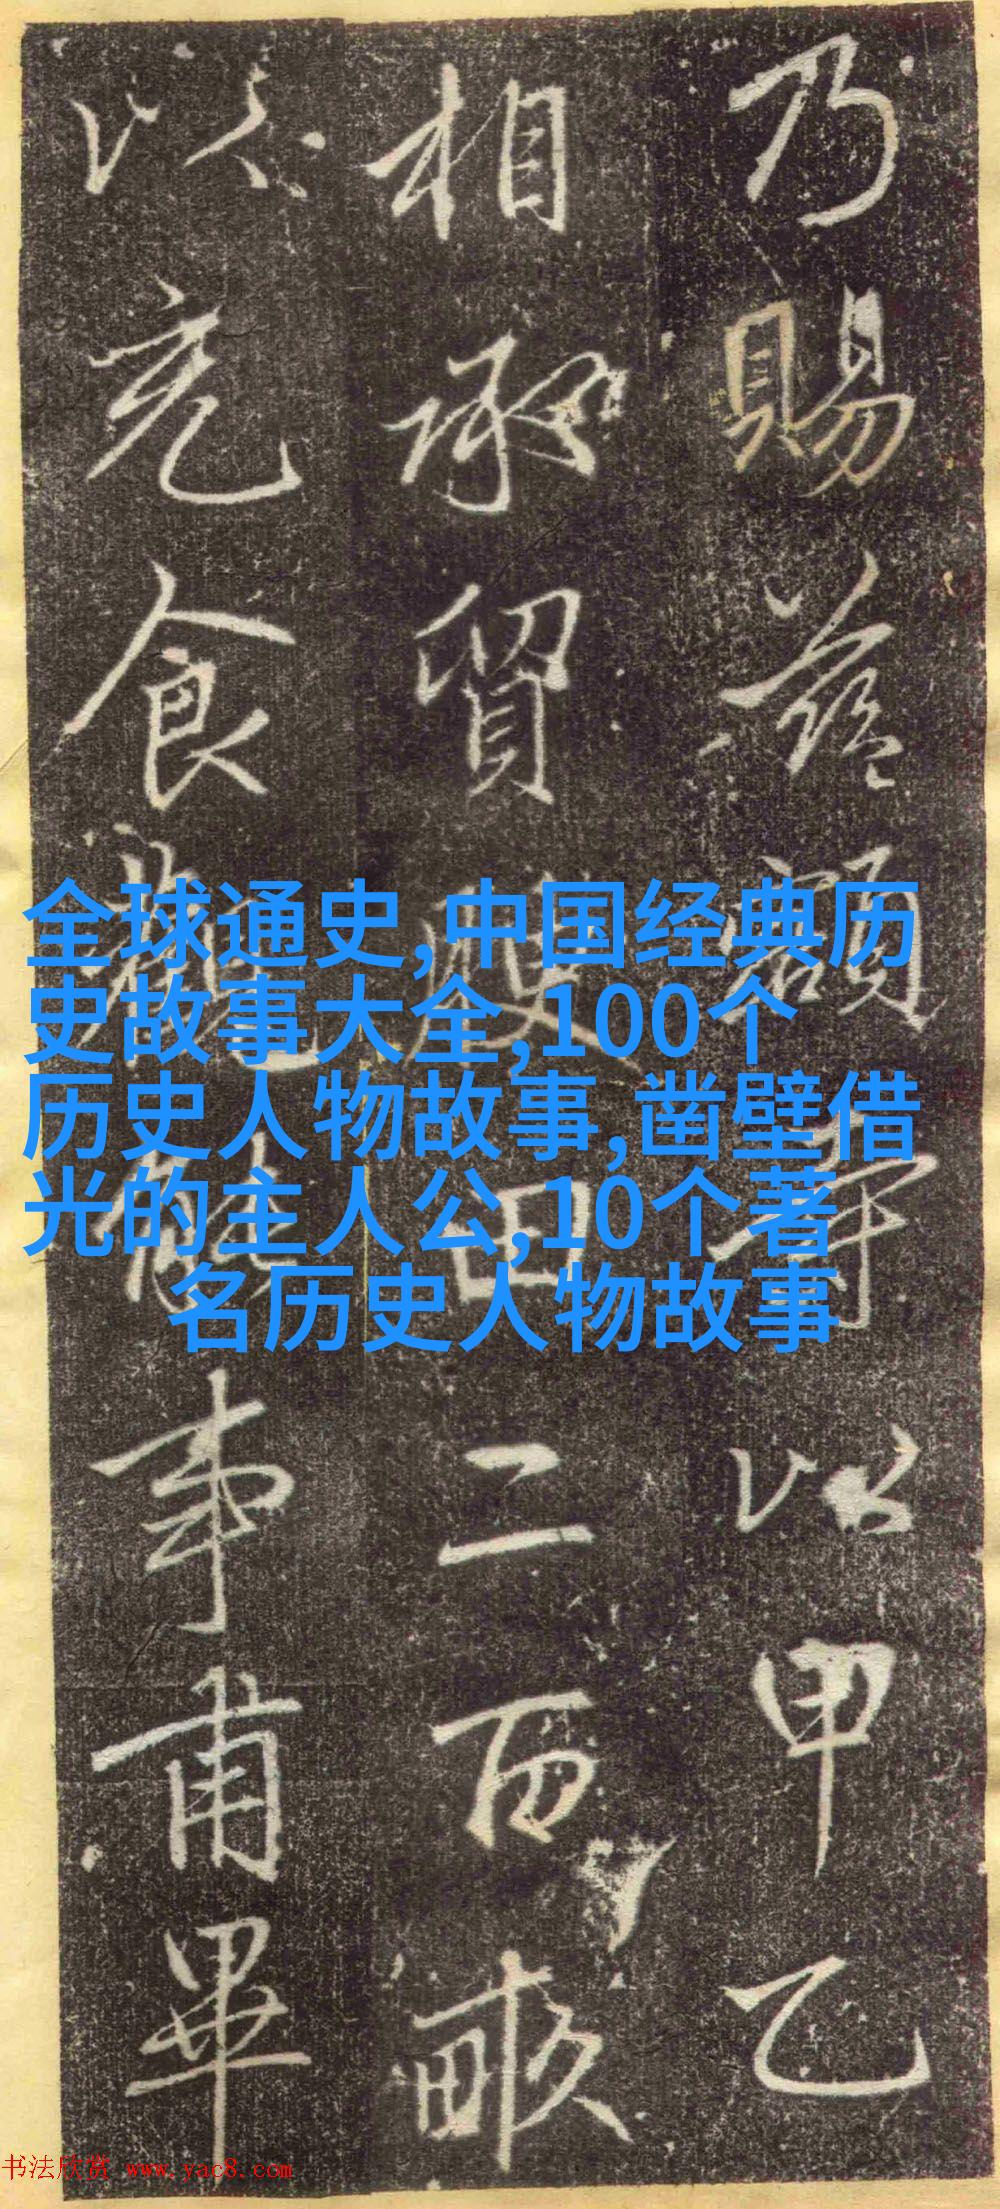 乃賜額寺以甲乙
相承貿腴田二百畝
以充食事甫畢
全球通史,中国经典历
史故事大全,100个
历史人物故事,凿壁借
光的主人公,10个著
名历史人物故事
书法欣赏 www.yac8.com